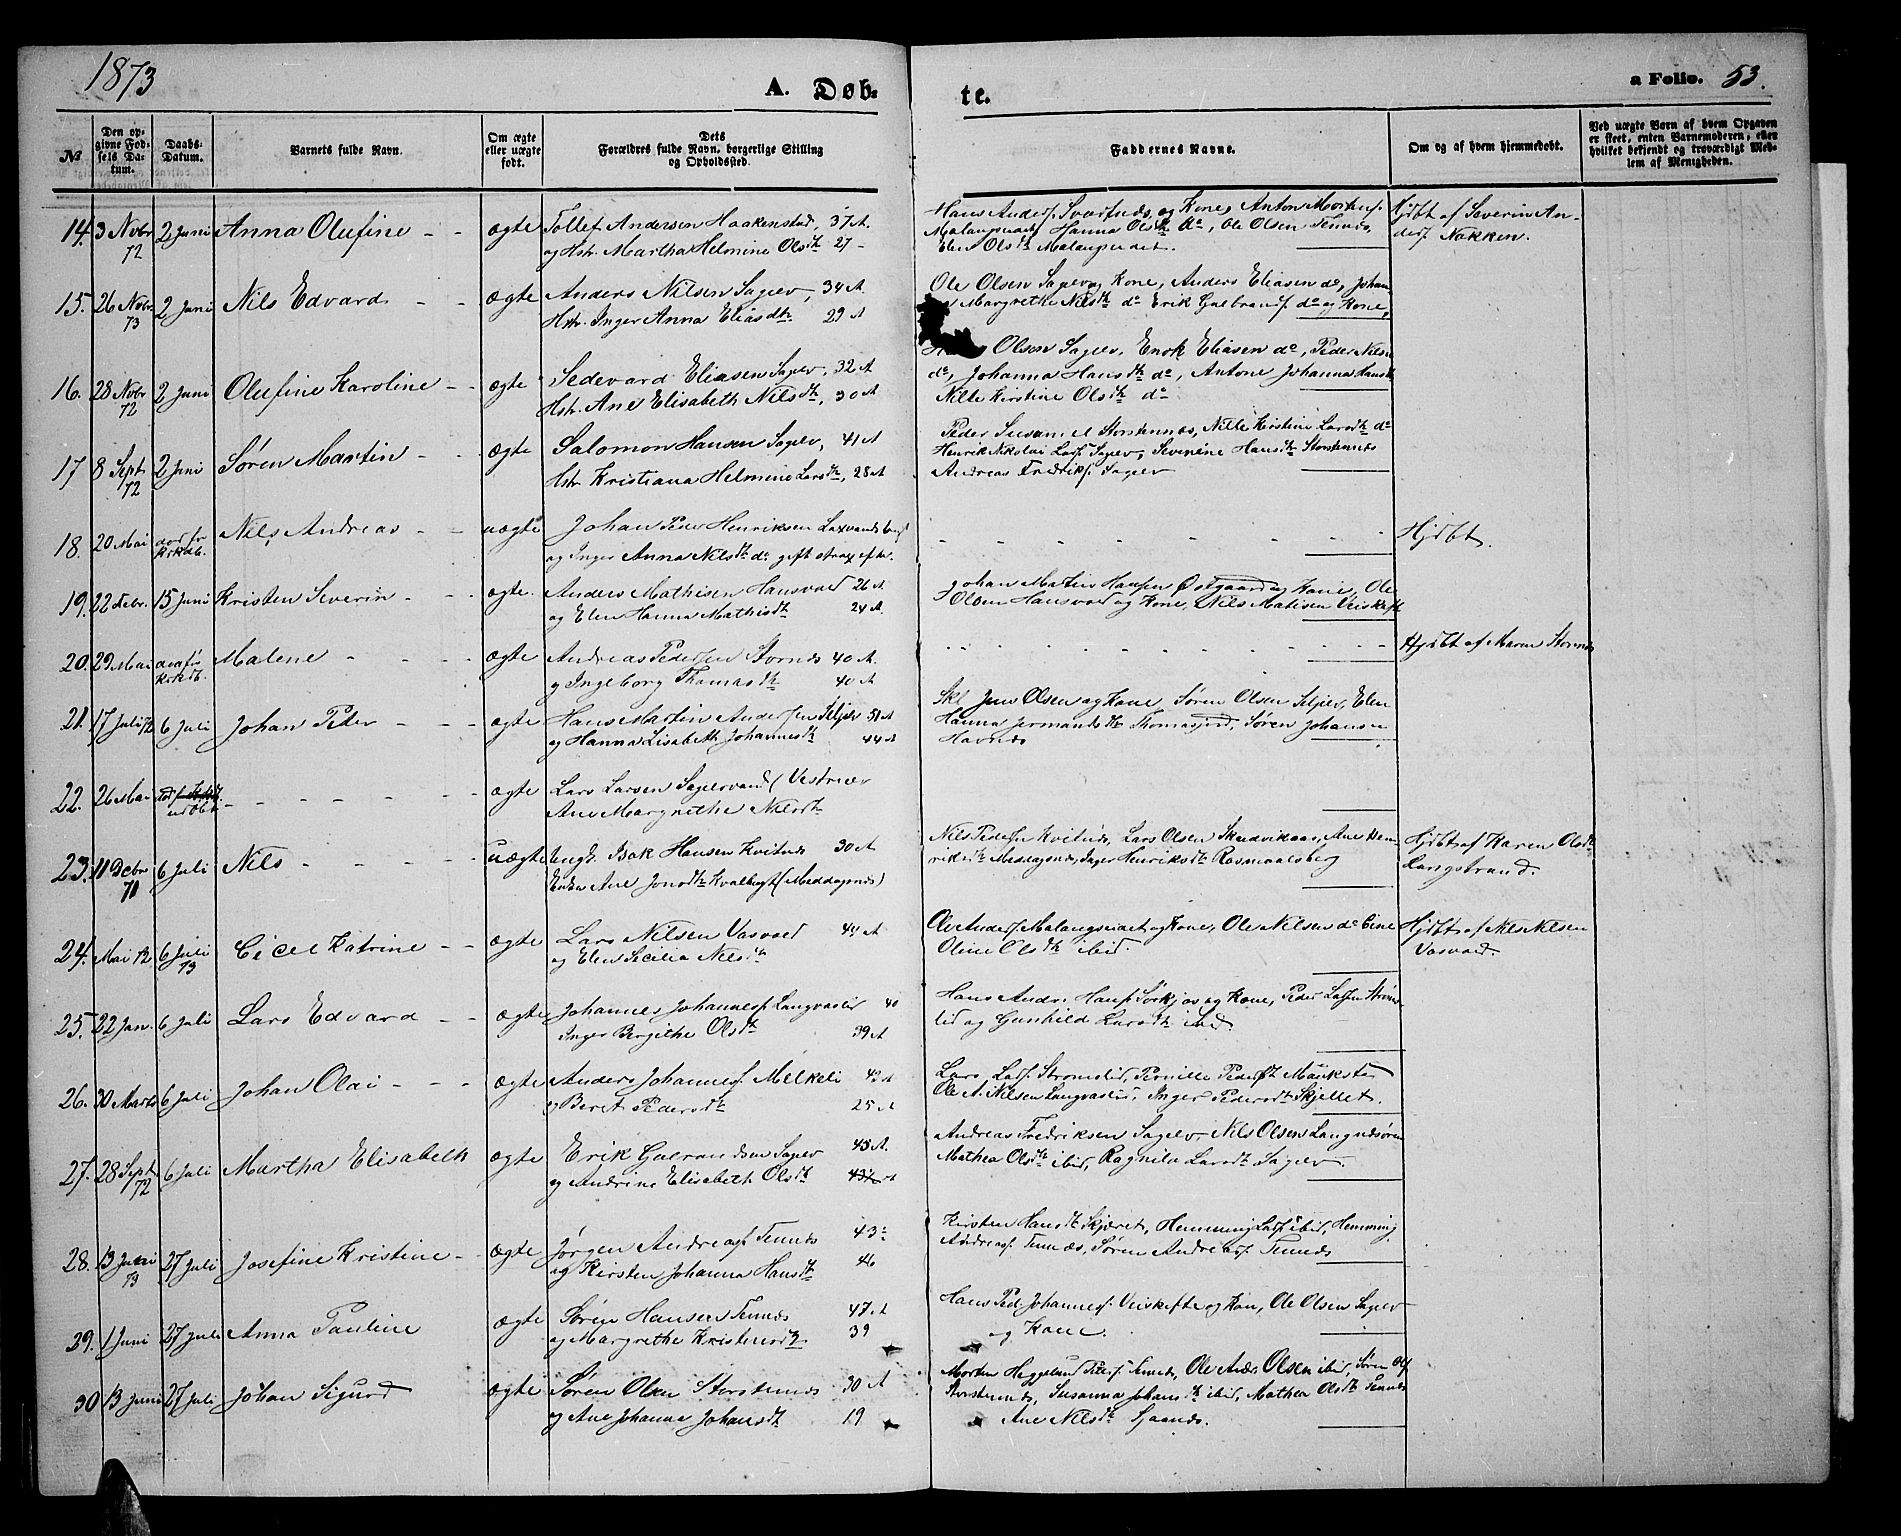 1873
A. Døb-
te.
a Folio. 53.
№
Den op-
givne Fød-
sels Da-
tum.
Daabs-
Datum.
Barnets fulde Navn.
Om ægte
eller uægte
født.
Dets
Forældres fulde Navn, borgerlige Stilling
og Opholdssted.
Faddernes Navne.
Om og af hvem hjemmedøbt.
Ved uægte Børn af hvem Opgaven
er skeet, enten Barnemoderen, eller
hvilket bekjendt og troværdigt Med-
lem af Menigheden.
14. 3 Novbr 72 2 Juni Anna Olufine - - ægte Tollef Andersen Haakenstad, 37 A.
og Hstr. Martha Helmine Olsdtr 27 -
Hans Anders. og Kone, Anton
Malangseidet, Hanna Olsdtr do, Ole Olsen Tennæs,
Elen Olsdtr Malangseidet.
Hjdbt af Severin An-
ders. Nakken.
15. 26 Novbr 73 2 Juni Nils Edvard - - ægte Anders Nilsen Sagelv, 34 A.
Hstr. Inger Anna Eliasdtr 29 A
Ole Olsen Sagelv og Kone, Anders Eliasen do, Johan
Margrethe Nilsdtr do Erik Gulbrands. do og Kone,
16. 28 Novbr 72 2 Juni Olufine Karoline - - ægte Sedevard Eliasen Sagelv, 32 A
Hstr. Ane Elisabeth Nilsdtr, 30 A
Olsen Sagelv, Enok Eliasen do, Peder Nilsen
do, Johanna Hansdtr do, Antone Johanna Hansdtr
Nille Kirstine Olsdtr do
17 8 Sept 72 2 Juni Søren Martin - - ægte Salomon Hansen Sagelv, 41 A
Hstr Kristiana Helmine Larsdtr, 28 A
Peder Storstennæs, Nille Kirstine Larsdtr do
Henrik Nikolai Lars. Sagelv, Severine Hansdtr Storstennæs
Andreas Fredriks. Sagelv
18. 20 Mai død før kirkdb. Nils Andreas - - uægte Johan Peder Henriksen
og Inger Anna Nilsdtr do gift strax efter.
Hjdbt.
19. 22 Febr. 15 Juni Kristen Severin - - ægte. Anders Mathisen Hansvold 26 A
og Elen Hanna Mathisdtr 24 A.
Johan Martin Hansen Østgaard og Kone, Ole
Olsen Hansvold og Kone, Nils Matisen Veiskifte
20. 29 Mai død før kirkdb. Malene - - - - ægte Andreas Pedersen Stornæs 40 A.
og Ingeborg Thomasdtr 40 A
Hjdbt af Maren Stornæs
21. 17 Juli 72 6 Juli Johan Peter - - - ægte Hans Martin Andersen Seljelv 51 A
og Hanna Lisabeth Johannesdtr 44 A
Skl Jens Olsen og Kone, Søren Olsen Seljelv, Elen
Hanna Jermandsdtr Thomasjord, Søren Johansen
Havnæs
22. 26 Mai død udøbt - - - - - ægte Lars Larsen Sagelvvand (Vestre
Ane Margrethe Nilsdtr
23. 11 Decbr 71 6 Juli Nils - - - - uægte Ungk. Isak Hansen Kvitnæs 30 A
Enke Ane Jonsdtr Kvalbugt (Meddagsnæs)
Nils Pedersen Kvitnæs, Lars Olsen Skudvikaas, Ane Hen-
riksdtr Meddagsnæs, Inger Henriksdtr Rasmaalsberg
Hjdbt af Karen Olsdtr
Langstrand.
24. Mai 72 6 Juli 73 Cicel Katrine - - ægte Lars Nilsen Vasvold 44 A
og Elen Secilia Nilsdtr
Ole Anders. Malangseidet og Kone, Ole Nilsen do
Oline Olsdtr ibid.
Hjdbt af Nils Nilsen
Vasvold.
25. 22 Jan. 6 Juli Lars Edvard - - ægte Johannes Johannes. Langvaslid 40
Inger Birgithe Olsdtr 39 A
Hans Andr. Hans. Sørkjos og Kone, Peder Larsen Strøms-
lid og Gunhild Larsdtr ibid.
26. 30 Marts 6 Juli Johan Olai - - - ægte Anders Johannes. Melkeli 42 A
og Berit Pedersdtr 25 A
Lars Lars. Strømslid, Pernille Pedersdtr
Ole A. Nilsen Langvaslid, Inger Pedersdtr Skjellet.
27. 28 Sept 72 6 Juli Martha Elisabeth ægte Erik Gulbrandsen Sagelv 45 A.
og Andrine Elisabeth Olsdtr
Andreas Fredriksen Sagelv, Nils Olsen Langnesøren
Mathea Olsdtr ibid, Ragnila Larsdtr Sagelv.
28. 13 Juni 73 27 Juli Josefine Kristine - ægte Jørgen Andreas. Tennæs 43
og Kirsten Johanna Hansdtr 46
Kirsten Hansdtr Skjæret, Hemming Lars. ibid, Hemming
Andreas. Tennæs, Søren Andreas. Tennæs
29. 1 Juni 27 Juli Anna Pauline ægte Søren Hansen Tennæs 47. A
og Margrethe Kristensdtr 39
Hans Ped. Johannes. Veiskifte og Kone, Ole Olsen Sagelv
og Kone.
30 13 Juni 27 Juli Johan Sigurd ægte Søren Olsen Storstennæs 30 A
og Ane Johanna Johansdtr 19
Morten Heggelund Peters. Tennæs, Ole Andr. Olsen ibid, Søren Ols.
Storstennæs, Susanna Johansdtr ibid, Mathea Olsdtr Tennæs
Ane Nilsdtr